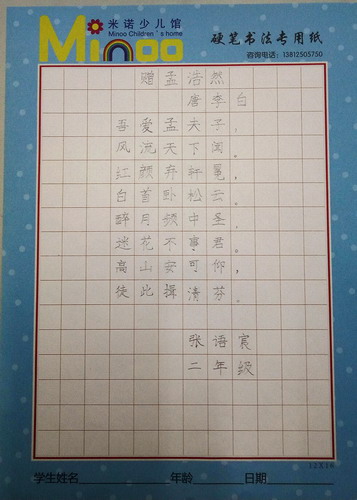 米诺少儿馆
Minoo Children's home
Minoo
硬笔书法专用纸
咨询电话：13812505750
赠孟浩然
唐李白
吾爱孟夫子，
风流天下闻。
红颜弃轩冕，
白首卧松云。
醉月频中圣，
迷花不事君。
高山安可仰，
徒此揖清芬。
张语宸
二年级
12X16
学生姓名 年龄 日期